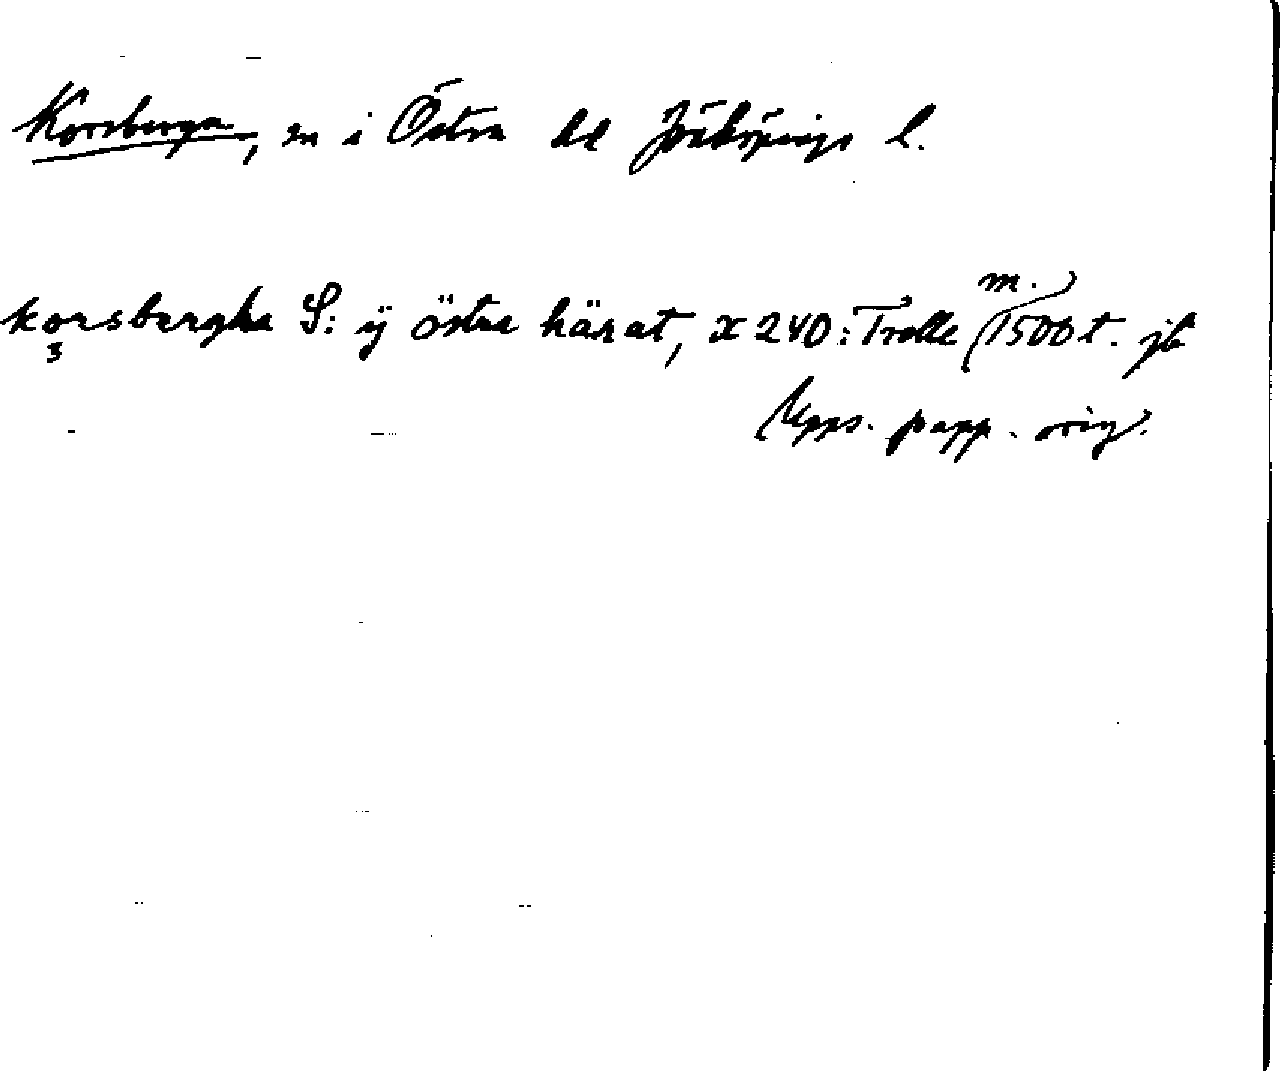 Korsberga, sn i Östra hd Jönköpings l.
korsbergha S: ÿ östra härat, x 240: Trolle 1500t. jb
m.
Upps. papp. orig.